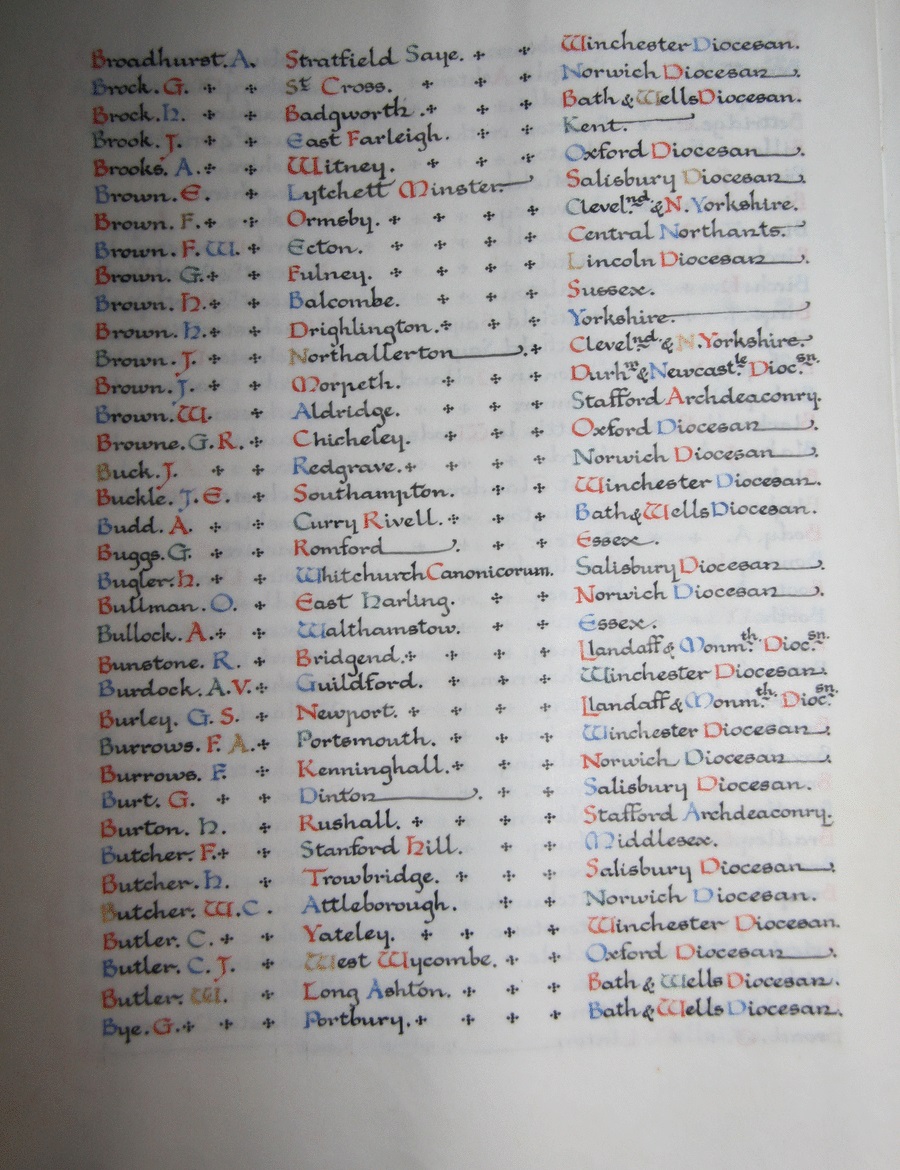 Broadhurst. A. Stratfield Saye. Winchester Diocesan.
Brock. G. St Cross. Norwich Diocesan.
Brock. H. Badgworth. Bath & Wells Diocesan.
Brook. J. East Farleigh. Kent.
Brooks. A. Witney. Oxford Diocesan.
Brown. E. Lytchett Minster. Salisbury Diocesan.
Brown. F. Ormsby. Clevel.nd & N. Yorkshire.
Brown. F. W. Ecton. Central Northants.
Brown. G. Fulney. Lincoln Diocesan.
Brown. H. Balcombe. Sussex.
Brown. H. Drighlington. Yorkshire.
Brown. J. Northallerton. Clevel.nd & N. Yorkshire.
Brown. J. Morpeth. Durhm & Newcast.le Dioc.sn.
Brown. W. Aldridge. Stafford Archdeaconry.
Browne. G. R. Chicheley. Oxford Diocesan.
Buck. J. Redgrave. Norwich Diocesan.
Buckle. J. E. Southampton. Winchester Diocesan.
Budd. A. Curry Rivell. Bath & Wells Diocesan.
Buggs. G. Romford. Essex.
Bugler. H. Whitchurch Canonicorum. Salisbury Diocesan.
Bullman. O. East Harling. Norwich Diocesan.
Bullock. A. Walthamstow. Essex.
Bunstone. R. Bridgend. Llandaff & Monm.th Dioc.sn.
Burdock. A. V. Guildford. Winchester Diocesan.
Burley. G. S. Newport. Llandaff & Monm.th Dioc.sn.
Burrows. F. A. Portsmouth. Winchester Diocesan.
Burrows. F. Kenninghall. Norwich Diocesan.
Burt. G. Dinton. Salisbury Diocesan.
Burton. H. Rushall. Stafford Archdeaconry.
Butcher. F. Stanford Hill. Middlesex.
Butcher. H. Trowbridge. Salisbury Diocesan.
Butcher. W. C. Attleborough. Norwich Diocesan.
Butler. C. Yateley. Winchester Diocesan.
Butler. C. J. West Wycombe. Oxford Diocesan.
Butler. W. Long Ashton. Bath & Wells Diocesan.
Bye. G. Portbury. Bath & Wells Diocesan.